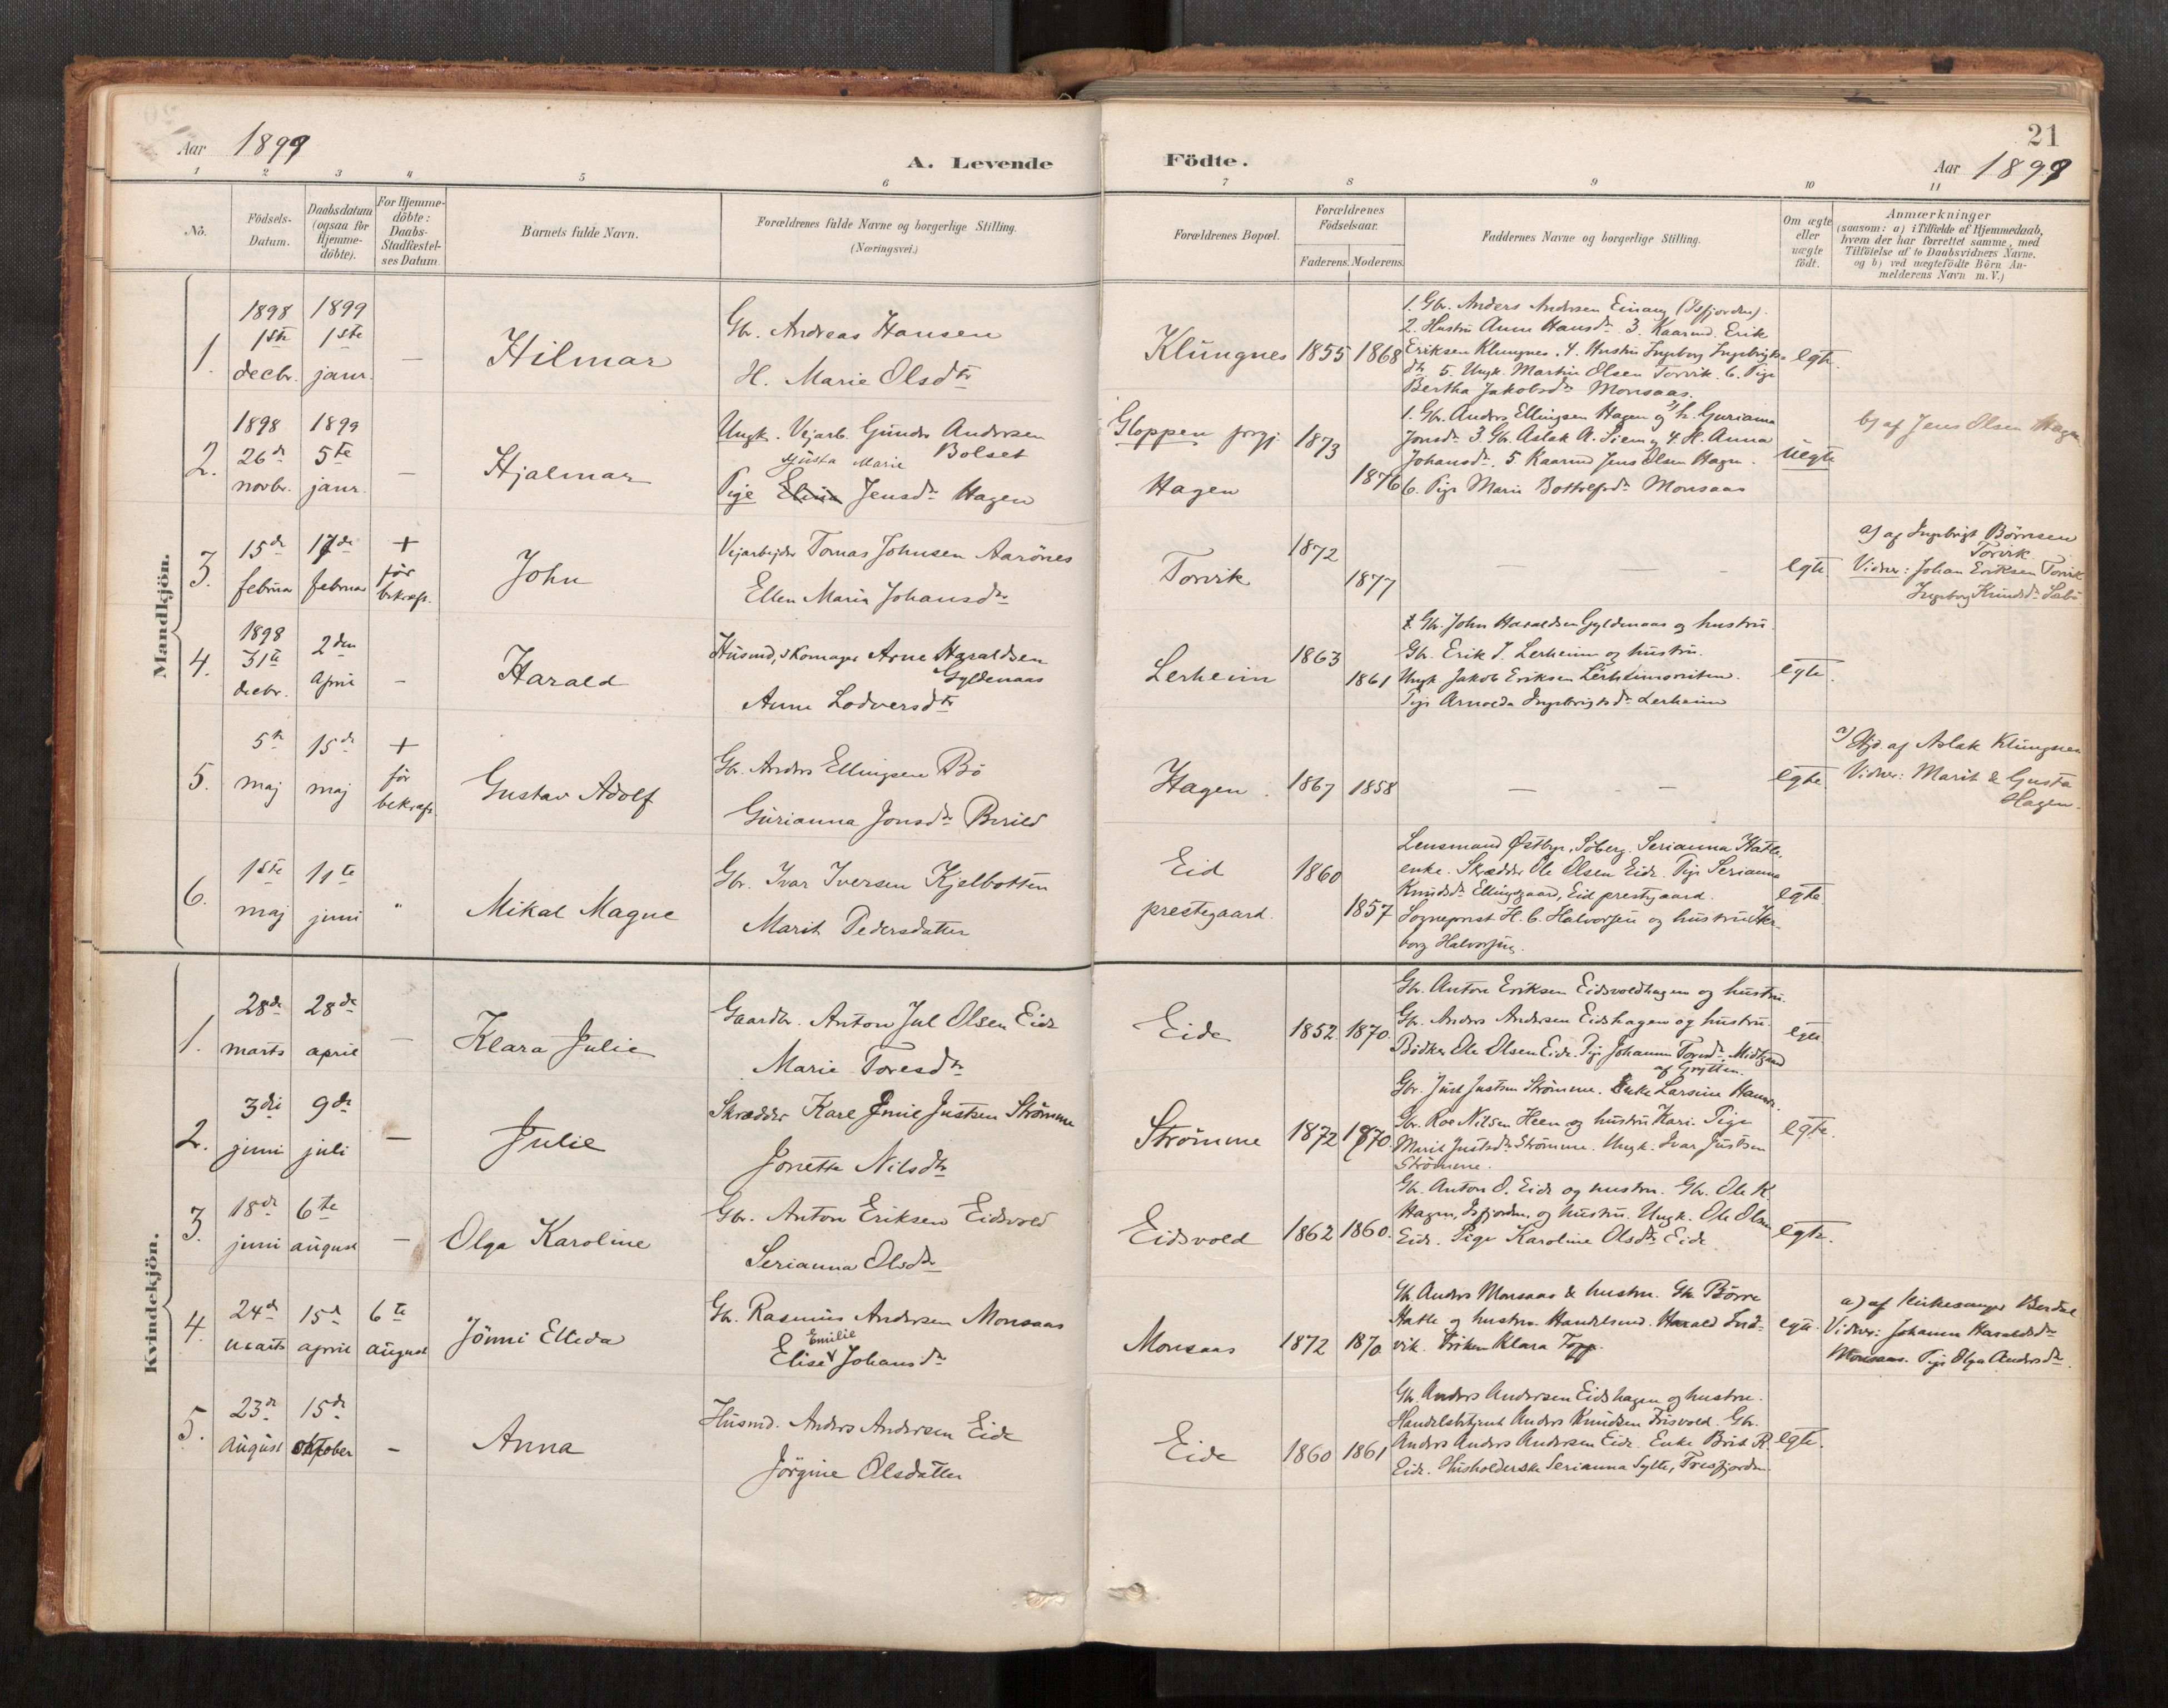 21
Aar 1899
A. Levende
Födte.
Aar 1899
1 2 3 4 5 6 7 8 9 10 11
No.
Födsels-
Datum.
Daabsdatum
(ogsaa for
Hjemme-
döbte).
For Hjemme-
döbte:
Daabs-
Stadfæstel-
ses Datum.
Barnets fulde Navn.
Forældrenes fulde Navne og borgerlige Stilling.
(Næringsvei.)
Forældrenes Bopæl.
Forældrenes
Födselsaar.
Faderens. Moderens.
Faddernes Navne og borgerlige Stilling.
Om ægte
eller
uægte
födt.
Anmærkninger
(saasom: a) i Tilfælde af Hjemmedaab,
hvem der har forrettet samme, med
Tilföielse af to Daabsvidners Navne.
og b) ved uægtefödte Börn An-
melderens Navn m. V.)
Mandkjön.
1.
1898
1ste
decbr.
1899
1ste
janr.
—
Hilmar
Gbr. Andreas Hansen
H. Marie Olsdtr
Klungnes
1855
1868
1. Gbr. Anders Andersen Einang (Isfjorden).
2. Hustru Anne Hansdr 3. Kaarmd. Erik
Eriksen Klungnes. 4. Hustru Ingeborg Ingebrigts-
dtr 5. Ungk. Martin Olsen Torvik. 6. Pige
Bertha Jakobsdr Monsaas.
egte.
2.
1898
26de
novbr.
1899
5te
janr.
—
Hjalmar
Ungk. Vejarb. Gunder Andersen
Bolset
Gusta Marie
Pige Elina Jensdr Hagen
Gloppen prgj.
Hagen
1873
1876
1. Gbr. Anders Ellingsen Hagen og 2) h. Gurianna
Jonsdr 3. Gbr. Aslak A. Siem og 4. H. Anna
Johansdr. 5. Kaarmd Jens Olsen Hagen.
6. Pige Marie Bottolfsdr Monsaas
uegte
b) af Jens Olsen Hagen
3.
15de
februar
17de
februar
+
før
bekræft.
John
Vejarbejder Tomas Johnsen Aarönes
Ellen Maria Johansdr
Torvik
1872
1877
— — —
egte.
a) af Ingebrigt Børnsen
Torvik
Vidner: Johan Eriksen Torvik
Ingeborg Knudsdr Sæbø
4.
1898
31te
decbr.
2den
April
—
Harald
Husmd, skomager Arne Haraldsen
Gyldenaas
Anne Lodversdtr
Lerheim
1863
1861
Gbr. John Haraldsen Gyldenaas og hustru.
Gbr. Erik J. Lerheim og hustru.
Ungk Jakob Eriksen Lerheimsviken.
Pige Arnolda Ingebrigtsdr Lerheim
egte.
5.
5te
maj
15de
maj
+
før
bekræft.
Gustav Adolf
Gbr. Anders Ellingsen Bö
Gurianna Jonsdr Berild
Hagen.
1867
1858
— — —
egte.
a) Hjd. af Aslak Klungnes
Vidner: Marit & Gusta
Hagen.
6.
1ste
maj
11te
juni
"
Mikal Magne
Gbr. Ivar Iversen Kjelbotten
Marit Pedersdatter
Eid
prestegaard.
1860
1857
Lensmand Østbye, Søberg. Serianna Hatle,
enke. Skrædder Ole Olsen Eide. Pige Serianna
Knudsdr Ellingsgaard, Eid prestgaard.
Sogneprest H. C. Halvorsen og hustru Her-
borg Halvorsen.
egte.
Kvindekjön.
1.
28de
marts
28de
april
—
Klara Julie
Gaardbr. Anton Jul Olsen Eide
Marie Toresdtr
Eide
1852
1870.
Gbr. Anton Eriksen Eidsvoldhagen og hustru.
Gbr. Anders Andersen Eidshagen og hustru.
Bødker Ole Olsen Eide. Pige Johanna Toresdr. Midtgaard
af Grytten.
egte.
2.
3die
juni
9de
juli
—
Julie
Skrædder Karl Emil Justsen Strömme
Jonette Nilsdtr
Strömme
1872
1870.
Gbr. Just Justsen Strömme. Enke Larsine Hansdr.
Gbr. Roe Nilsen Heen og hustru Kari. Pige
Marit Justsdr Strömme. Ungk. Ivar Justsen
Strömme.
egte.
3.
18de
juni
6te
august
—
Olga Karoline
Gbr. Anton Eriksen Eidsvold
Serianna Olsdtr
Eidsvold
1862
1860.
Gbr. Anton O. Eide og hustru. Gbr. Ole K.
Hagen, Isfjorden, og hustru. Ungk. Ole Olsen
Eide. Pige Karoline Olsdtr Eide
egte.
4.
24de
marts
15de
april
6te
august
Jönni Elleda
Gbr. Rasmus Andersen Monsaas
Emilie
Elise Johansdr
Monsaas
1872
1870.
Gbr. Anders Monsaas & hustru. Gbr Börre
Hatle og hustru. Handelsmd. Harald Ind-
vik. Frøken Klara Fopp.
egte.
a) af Kirkesanger Berdal
Vidner: Johanna Haraldsdr
Monsaas. Pige Olga Andersdr.
5.
23de
August
15de
oktober
—
Anna
Husmd. Anders Andersen Eide
Jörgine Olsdatter
Eide
1860
1861
Gbr. Anders Andersen Eidshagen og hustru.
Handelsbetjent Anders Knudsen Frisvold. Gbr.
Anders Anders Andersen Eide. Enke Brit R.
Eide. Husholderske Serianna Sylte, Tresfjorden.
egte.